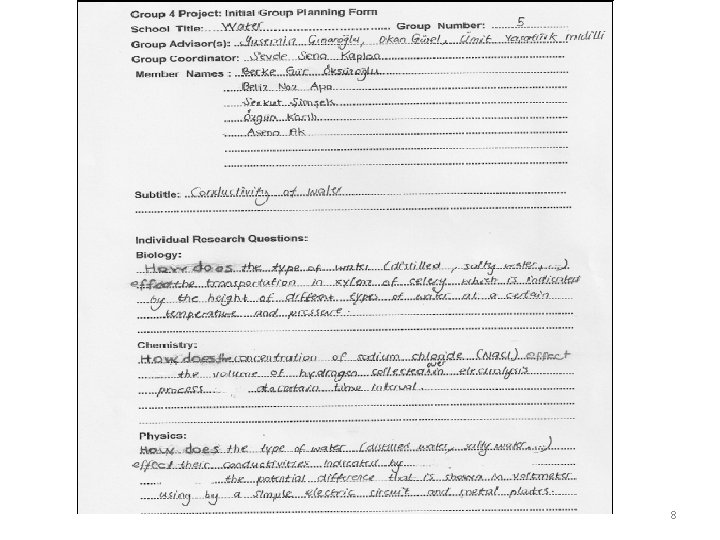 Group 4 Project: Initial Group Planning Form
School Title: Water Group Number: 5
Group Advisor(s): Yasemin Çınaroğlu, Okan Günel, Ümit Yaşatürk midilli
Group Coordinator: Sevde Sena Kaplan
Member Names : Berke Gür Öksüroğlu
Beliz Naz Apa
Serkut Şimşek
Özgün Karslı
Asena Ak
Subtitle: Conductivity of water
Individual Research Questions:
Biology:
How does the type of water (distilled, salty water, ...)
effect the transportation in xylem of celery which is indicated
by the height of different types of water at a certain
temperature and pressure.
Chemistry:
How does the concentration of sodium chloride (NaCl) effect
the volume of hydrogen collected in over electrolysis
process at a certain time interval.
Physics:
How does the type of water (distilled water, salty water, ...)
effect their conductivities indicated by
the potential difference that is shown in voltmeter
using by a simple electric circuit and metal plates.
8